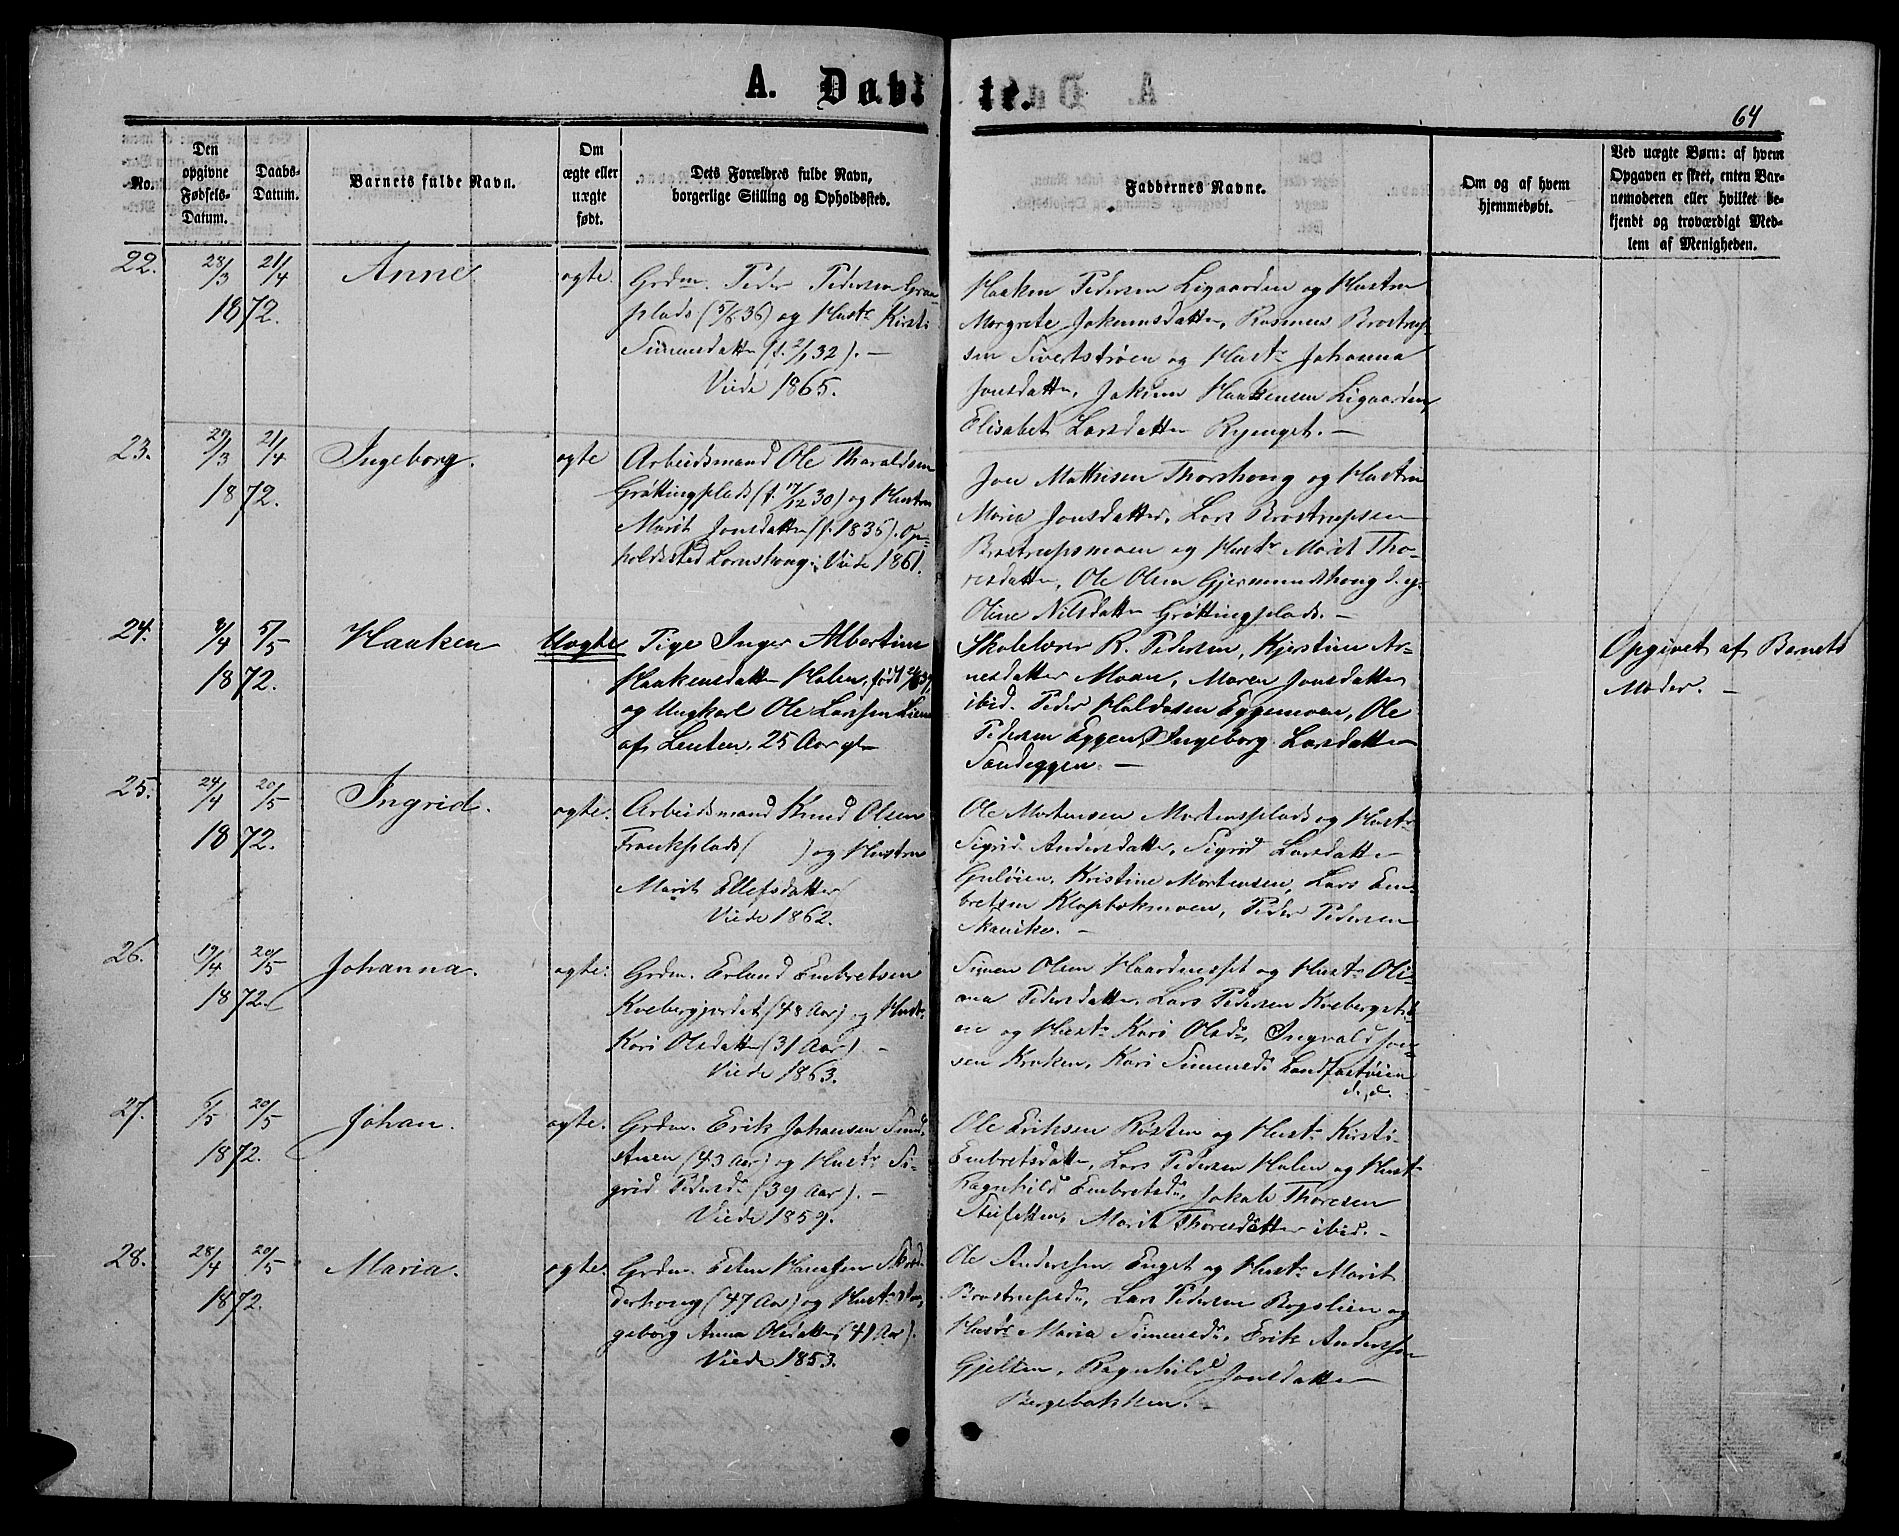 A. Døbte.
64
No.
Den opgivne Fødsels-Datum.
Daabs-Datum.
Barnets fulde Navn.
Om ægte eller uægte født.
Dets Forældres fulde Navn, borgerlige Stilling og Opholdssted.
Faddernes Navne.
Om og af hvem hjemmedøbt.
Ved uægte Børn: af hvem
Opgaven er skeet, enten Bar-
nemoderen eller hvilket be-
kjendt og troværdigt Med-
lem af Menigheden.
22. 28/3 21/4 1872. Anne. ægte.
Grdm. Peder Pedersen Gran-
plads (5/6 36) og Hustr Kirsti
Simensdatter (f. 2/1 32). —
Viede 1865.
Haaken Pedersen Ligaarden og Hustru
Margrete Jokumsdatter, Rasmus Brostrup-
sen Sivertstrøen og Hustr Johanna
Jonsdatter, Jokum Haakensen Ligaarden,
Elisabet Larsdatter Ryenget. —
23. 29/3 21/4 1872. Ingeborg. ægte
Arbeidsmand Ole Tharaldsen
Grøttingplads (f. 17/12 30) og Hustru
Marit Jonsdatter (f. 1836). Op-
holdssted Lomshong. Viede 1861.
Jon Mathisen Thorshoug og Hustru
Maria Jonsdatter, Lars Brostrupsen
Brostrupsmoen og Hustr Marit Tho-
resdatter, Ole Olsen Gjermundshoug d. y.
Oline Nilsdatter Grøttingplads. —
24. 8/4 5/5 1872. Haaken Uægte
Pige Inger Albertine
Haakensdatter Holen, født
og Ungkarl Ole Larssen
af Leuten, 25 Aar gl
Skolelærer R. Pedersen, Kjerstine Ar-
nesdatter Moan, Maren Jonsdatter
ibid. Peder Haldosen Eggemoen, Ole
Pedersen Eggen, Ingeborg Larsdatter
Sandeggen. —
Opgivet af Barnets
Moder. —
25. 24/4 20/5 1872. Ingrid. ægte.
Arbeidsmand Knud Olsen
Frankplads ( ) og Hustru
Marit Ellefsdatter
Viede 1862.
Ole Mortensen Mortensplads og Hustr
Sigrid Andersdatter, Sigrid Larsdatter
Guløien, Kristine Mortensen, Lars Em-
bretsen Klopbakmoen, Peder Pedersen
26. 19/4 20/5 1872. Johanna. ægte.
Grdm. Erland Embretsen
Kvebergjordet (48 Aar) og Hustr
Kari Olsdatter (31 Aar). —
Viede 1863.
Simen Olsen Haardnæsset og Hustr Oli-
ana Pedersdatter, Lars Pedersen
en og Hustr Kari Olsdr, Ingvald Jon-
sen Kroken, Kari Simensdr Landfastøien
d. y.
27. 6/5 20/5 1872. Johan. ægte.
Grdm. Erik Johansen
stuen (43 Aar) og Hustr Si-
grid Pedersdr (39 Aar). —
Viede 1859.
Ole Eriksen Røsten og Hustr Kirsti
Embretsdatter, Lars Pedersen Holen og Hustr
Ragnhild Embretsdr, Jakob Thoresen
Steifetten, Marit Thoresdatter ibid. —
28. 28/4 20/5 1872. Maria. ægte.
Grdm. Esten Hansen
derhoug (47 Aar) og Hustr In-
geborg Anna Olsdatter (41 Aar).
Viede 1853.
Ole Anderssen Enget og Hustr Marit
Brostrupsdr, Lars Pedersen Bogslien og
Hustr Maria Simensdr, Erik Andersen
Gjelten, Ragnhild Jonsdatter
Bergebakken. —